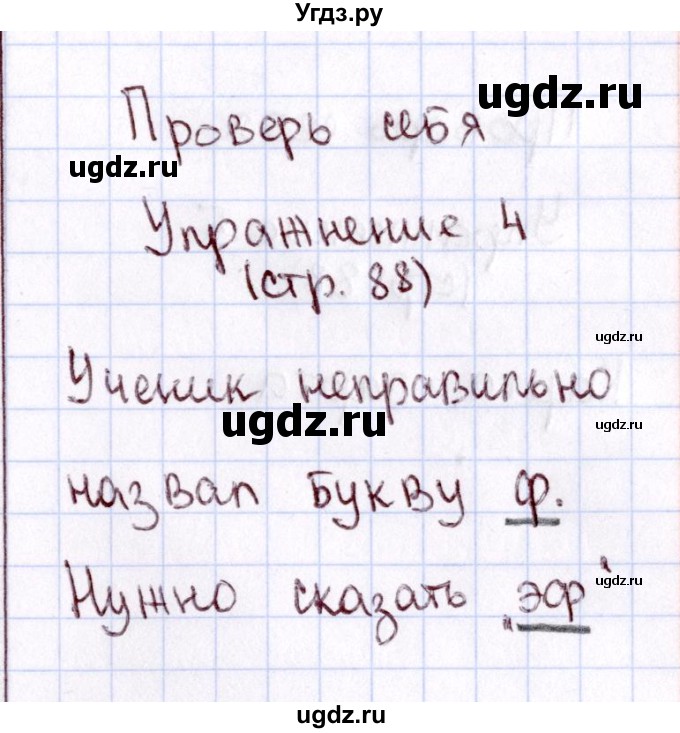 Угдз.ру
ugdz.ru
Проверь себя
ugdz.ru
Упражнение 4
(стр. 88)
ugdz.ru
Ученик неправильно
ugdz.ru
ugdz.ru
назвал букву ф.
Нужно сказать „эф“
ugdz.ru
ugdz.ru